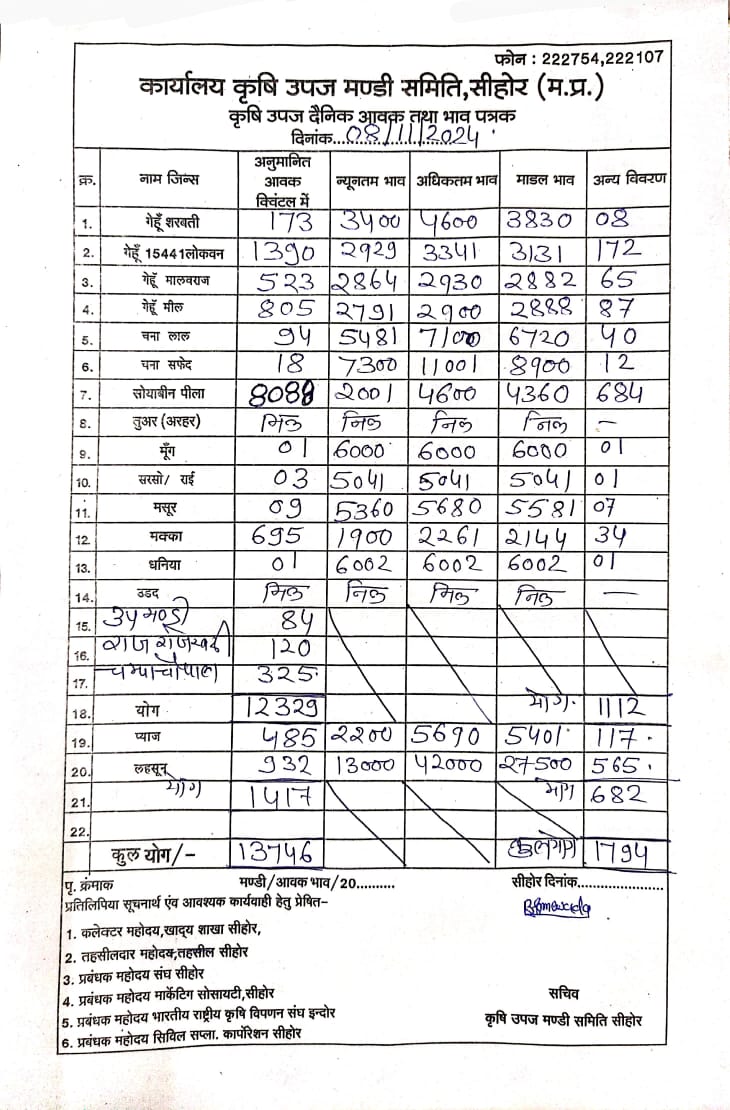 फोन : 222754,222107
कार्यालय कृषि उपज मण्डी समिति,सीहोर (म.प्र.)
कृषि उपज दैनिक आवक तथा भाव पत्रक
दिनांक...08/11/2024
क्र. नाम जिन्स अनुमानित आवक क्विंटल में न्यूनतम भाव अधिकतम भाव माडल भाव अन्य विवरण
1. गेहूँ शरबती 173 3400 4600 3830 08
2. गेहूँ 15441लोकवन 1390 2929 3341 3131 172
3. गेहूँ मालवराज 523 2864 2930 2882 65
4. गेहूँ मील 805 2791 2900 2888 87
5. चना लाल 94 5481 7100 6720 40
6. चना सफेद 18 7300 11001 8900 12
7. सोयाबीन पीला 8088 2001 4600 4360 684
8. तुअर (अरहर) निल निल निल निल —
9. मूँग 01 6000 6000 6000 01
10. सरसो/ राई 03 5041 5041 5041 01
11. मसूर 09 5360 5680 5581 07
12. मक्का 695 1900 2261 2144 34
13. धनिया 01 6002 6002 6002 01
14. उडद निल निल निल निल —
15. उपमण्डी 84
16. 120
17. 325
18. योग 12329 योग 1112
19. प्याज 485 2200 5690 5401 117
20. लहसून 932 13000 42000 27500 565
21. योग 1417 योग 682
22.
कुल योग/- 13746 कुलयोग 1794
पृ. क्रंमाक मण्डी/आवक भाव/20.......... सीहोर दिनांक......................
प्रतिलिपिया सूचनार्थ एंव आवश्यक कार्यवाही हेतु प्रेषित–
1. कलेक्टर महोदय,खाद्य शाखा सीहोर,
2. तहसीलदार महोदय,तहसील सीहोर
3. प्रबंधक महोदय संघ सीहोर
4. प्रबंधक महोदय मार्केटिग सोसायटी,सीहोर
5. प्रबंधक महोदय भारतीय राष्ट्रीय कृषि विपणन संघ इन्दोर
6. प्रबंधक महोदय सिविल सप्ला. कार्पोरेशन सीहोर
सचिव
कृषि उपज मण्डी समिति सीहोर